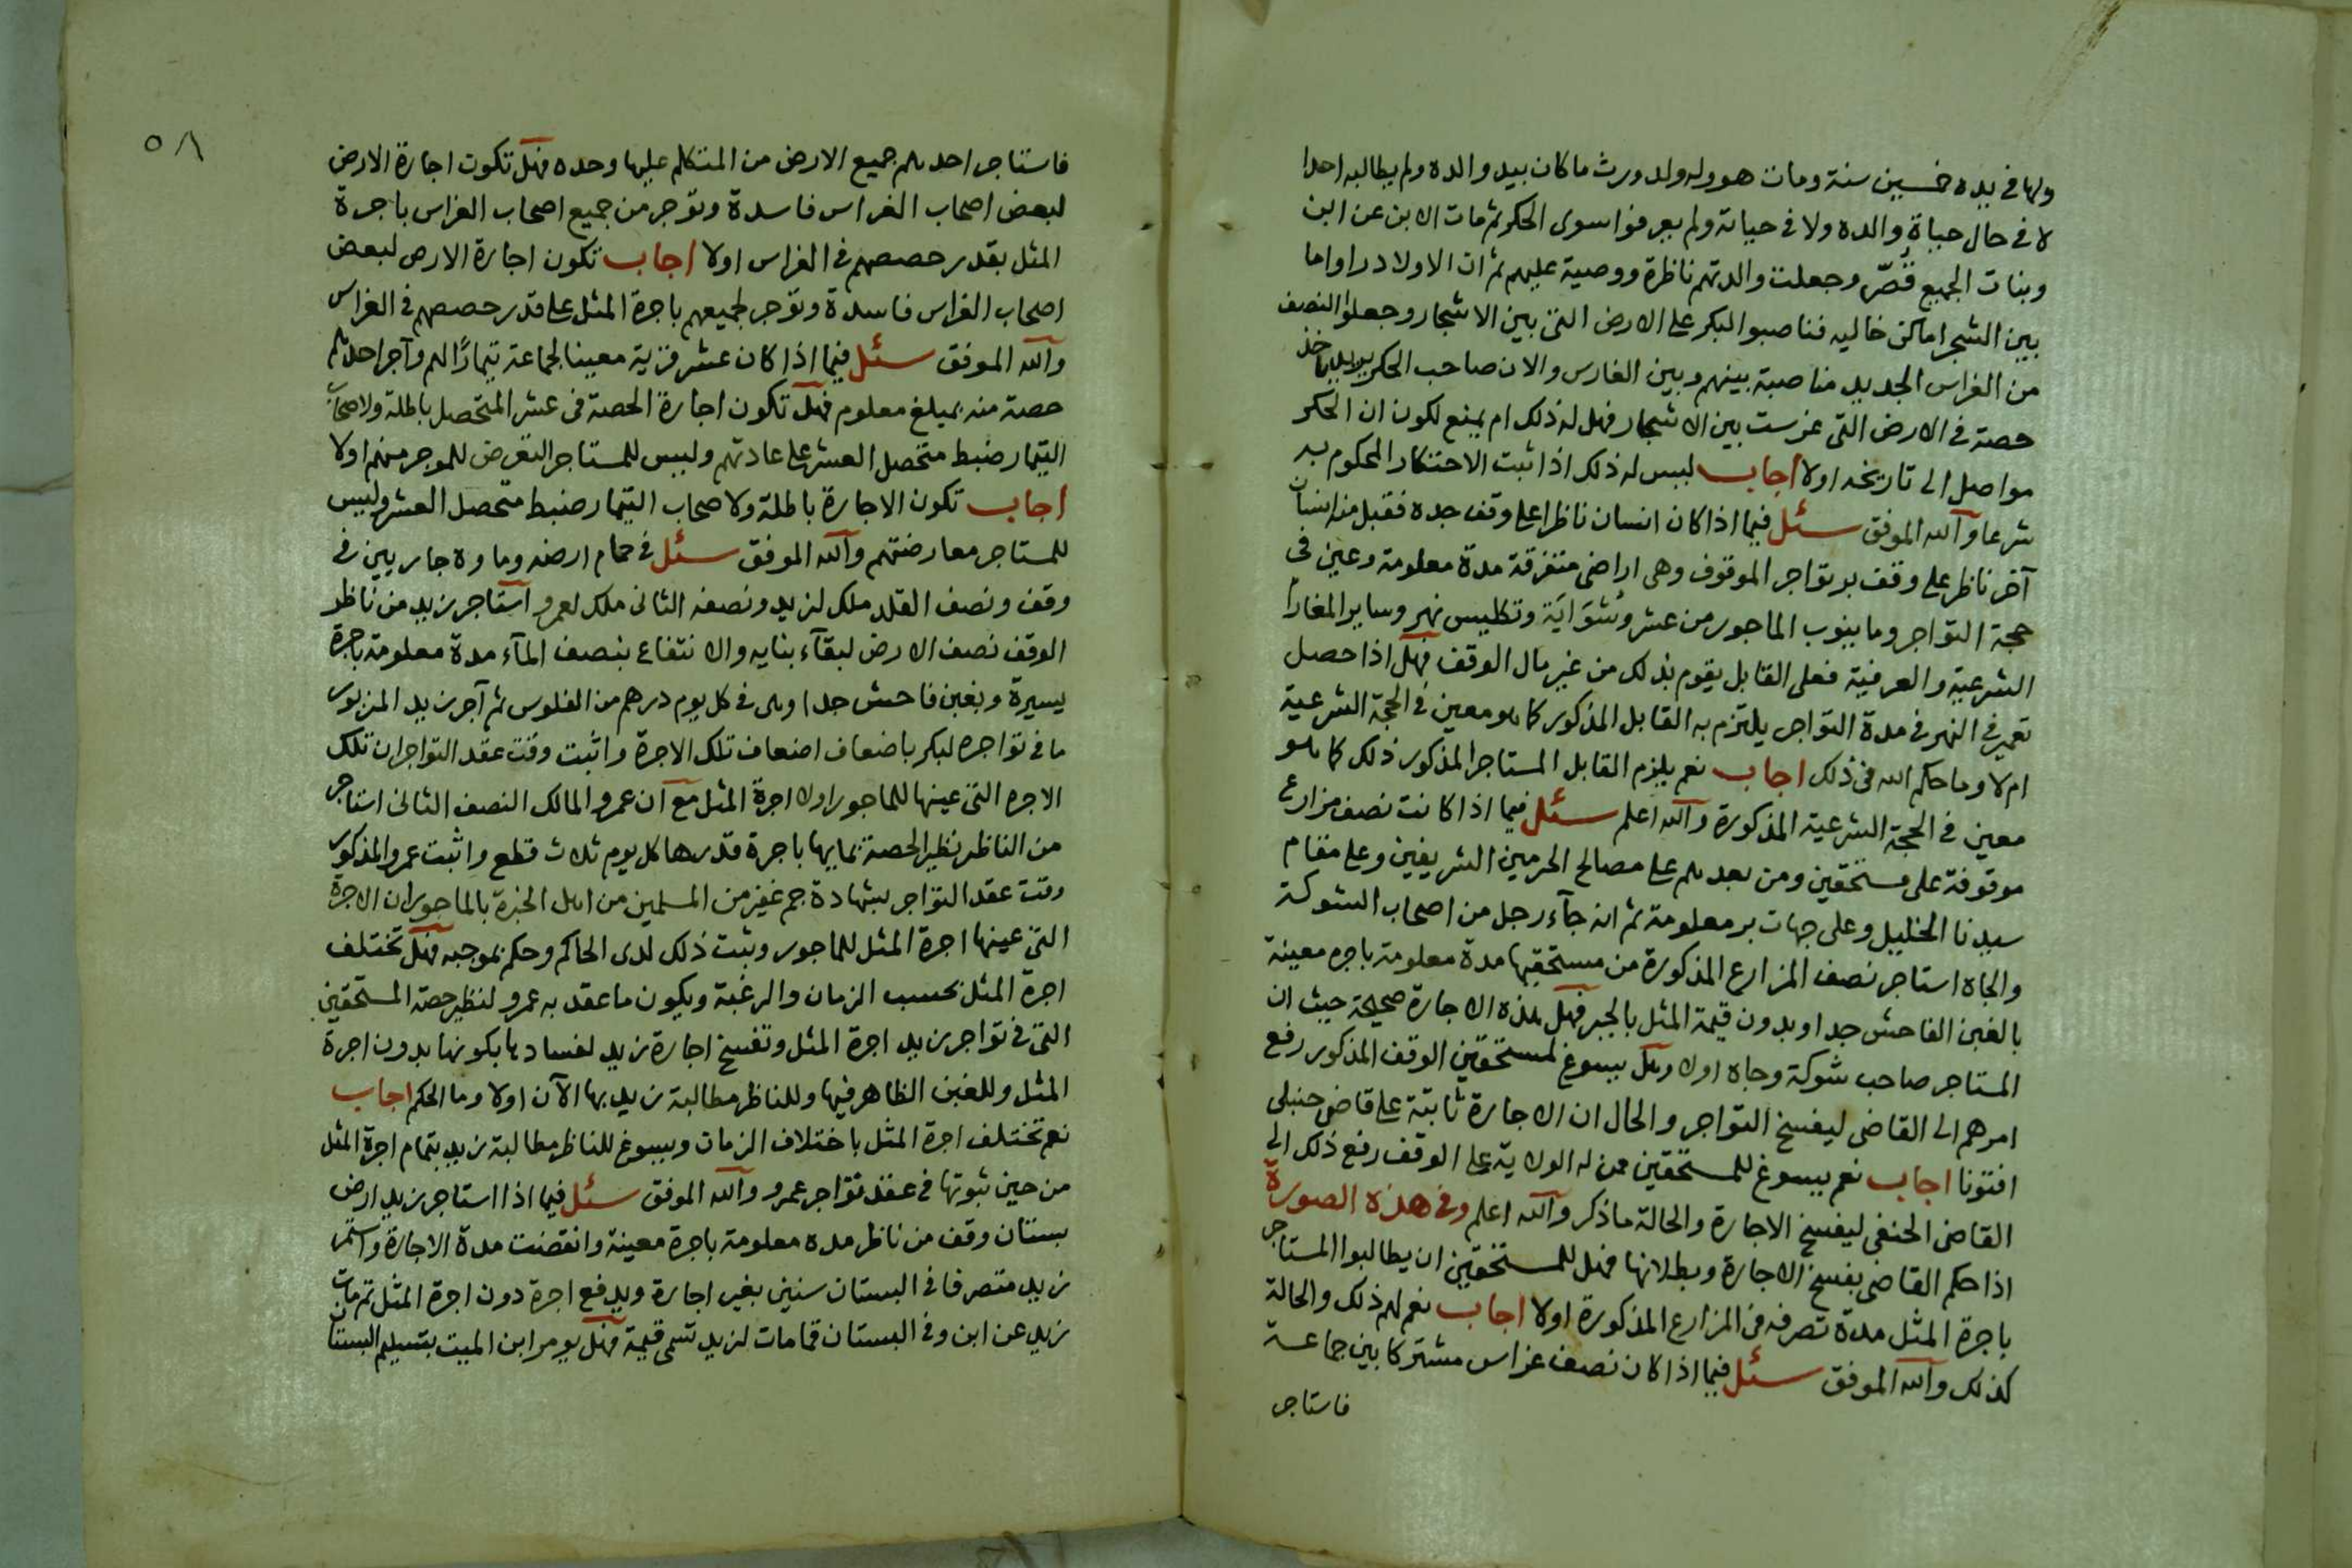 ولها في يده خمسين سنة ومات هو وله ولد ورث ما كان بيد والده ولم يطالبه احدا
لا في حال حياة والده ولا في حياته ولم يعرفوا سوى الحكر ثم مات الابن عن ابن
وبنات الجميع قصّر وجعلت والدتهم ناظرة ووصية عليهم ثم ان الاولاد راوا ما
بين الشجر اماكن خاليه فناصبوا لبكر على الارض التي بين الاشجار وجعلوا النصف
من الغراس الجديد مناصبة بينهم وبين الغارس والان صاحب الحكر يريد ياخذ
حصته في الارض التي غرست بين الاشجار فهل له ذلك ام يمنع لكون ان الحكر
مواصل الى تاريخه اولا اجاب ليس له ذلك اذا ثبت الاحتكار المحكوم به
شرعا والله الموفق سئل فيما اذا كان انسان ناظرا على وقف جده فقبل منه انسان
آخر ناظر على وقف بر تواجر الموقوف وهي اراضي متفرقة مدة معلومة وعين في
حجة التواجر وما ينوب الماجور من عشر وشواية وتكليس نهر وساير المغارم
الشرعية والعرفية فعلى القابل يقوم بذلك من غير مال الوقف فهل اذا حصل
تعمير في النهر في مدة التواجر يلتزم به القابل المذكور كما هو معين في الحجة الشرعية
ام لا وما حكم الله في ذلك اجاب نعم يلزم القابل المستاجر المذكور ذلك كما هو
معين في الحجة الشرعية المذكورة والله اعلم سئل فيما اذا كانت نصف مزارع
موقوفة على مستحقين ومن بعدهم على مصالح الحرمين الشريفين وعلى مقام
سيدنا الخليل وعلى جهات بر معلومة ثم انه جآء رجل من اصحاب الشوكة
والجاه استاجر نصف المزارع المذكورة من مستحقيها مدة معلومة باجره معينة
بالغبن الفاحش جدا وبدون قيمة المثل بالجبر فهل هذه الاجارة صحيحة حيث ان
المستاجر صاحب شوكة وجاه اولا وهل يسوغ لمستحقين الوقف المذكور رفع
امرهم الى القاضي ليفسخ التواجر والحال ان الاجارة ثابتة على قاضي حنبلي
افتونا اجاب نعم يسوغ للمستحقين ممن له الولاية على الوقف رفع ذلك الى
القاضي الحنفي ليفسخ الاجارة والحالة ما ذكر والله اعلم وفي هذه الصورة
اذا حكم القاضي بفسخ الاجارة وبطلانها فهل للمستحقين ان يطالبوا المستاجر
باجرة المثل مدة تصرفه في المزارع المذكورة اولا اجاب نعم لهم ذلك والحالة
كذلك والله الموفق سئل فيما اذا كان نصف غراس مشتركا بين جماعة
فاستاجر
٥٨
فاستاجر احدهم جميع الارض من المتكلم عليها وحده فهل تكون اجارة الارض
لبعض اصحاب الغراس فاسدة وتؤجر من جميع اصحاب الغراس باجرة
المثل بقدر حصصهم في الغراس اولا اجاب تكون اجارة الارض لبعض
اصحاب الغراس فاسدة وتؤجر لجميعهم باجرة المثل على قدر حصصهم في الغراس
والله الموفق سئل فيما اذا كان عشر قرية معينا لجماعة تيمارًا لهم وآجر احدهم
حصته منه بمبلغ معلوم فهل تكون اجارة الحصة في عشر المتحصل باطلة ولاصحاب
التيمار ضبط متحصل العشر على عادتهم وليس للمستاجر التعرض للموجر منهم اولا
اجاب تكون الاجارة باطلة ولاصحاب التيمار ضبط متحصل العشر وليس
للمستاجر معارضتهم والله الموفق سئل في حمام ارضه وماوه جاريين في
وقف ونصف القلد ملك لزيد ونصفه الثاني ملك لعمرو آستاجر زيد من ناظر
الوقف نصف الارض لبقآء بنايه والانتفاع بنصف المآء مدة معلومة باجرة
يسيرة وبغبن فاحش جدا وهى في كل يوم درهم من الفلوس ثم آجر زيد المزبور
ما في تواجره لبكر باضعاف اضعاف تلك الاجرة واثبت وقت عقد التواجر ان تلك
الاجره التي عينها للماجور اولا اجرة المثل مع ان عمرو المالك النصف الثاني استاجر
من الناظر نظير الحصة بمايها باجرة قدرها كل يوم ثلاث قطع واثبت عمرو المذكور
وقت عقد التواجر بشهادة جم غفير من المسلمين من اهل الخبرة بالماجور ان الاجرة
التي عينها اجرة المثل للماجور وثبت ذلك لدى الحاكم وحكم بموجبه فهل تختلف
اجرة المثل بحسب الزمان والرغبة ويكون ما عقد به عمرو لنظير حصة المستحقين
التي في تواجر زيد اجرة المثل وتفسخ اجارة زيد لفسادها بكونها بدون اجرة
المثل وللغبن الظاهر فيها وللناظر مطالبة زيد بها الآن اولا وما الحكم اجاب
نعم تختلف اجرة المثل باختلاف الزمان ويسوغ للناظر مطالبة زيد بتمام اجرة المثل
من حين ثبوتها في عقد تواجر عمرو والله الموفق سئل فيما اذا استاجر زيد ارض
بستان وقف من ناظر مده معلومة باجرة معينة وانقضت مدة الاجارة واستمر
زيد متصرفا في البستان سنين بغير اجارة ويدفع اجرة دون اجرة المثل ثم مات
زيد عن ابن وفي البستان قمامات لزيد تسمى قيمة فهل يومر ابن الميت بتسليم البستان